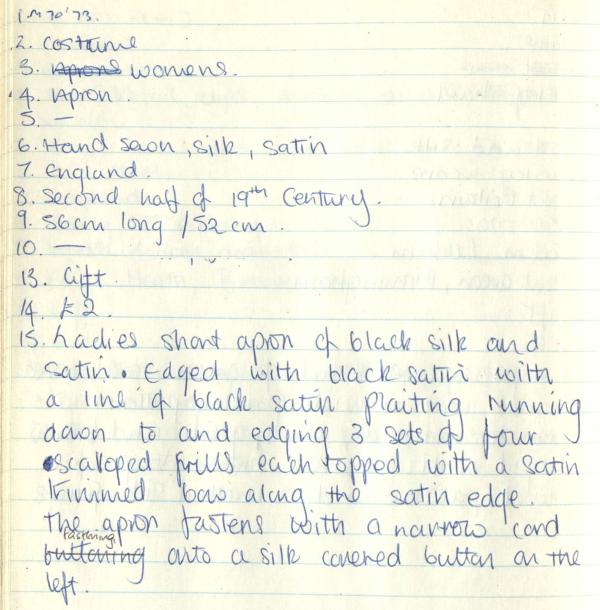 1. M70'73.
2. costume
3. Aprons womens.
4. Apron.
5. —
6. Hand sewn, silk, satin
7. england.
8. Second half of 19th Century.
9. 56cm long / 52cm.
10. —
13. Gift.
14. £2.
15. Ladies short apron of black silk and
satin. Edged with black satin with
a line of black satin plaiting running
down to and edging 3 sets of four
scalloped frills each topped with a satin
trimmed bow along the satin edge.
The apron fastens with a narrow cord
fastening
buttoning onto a silk covered button on the
left.